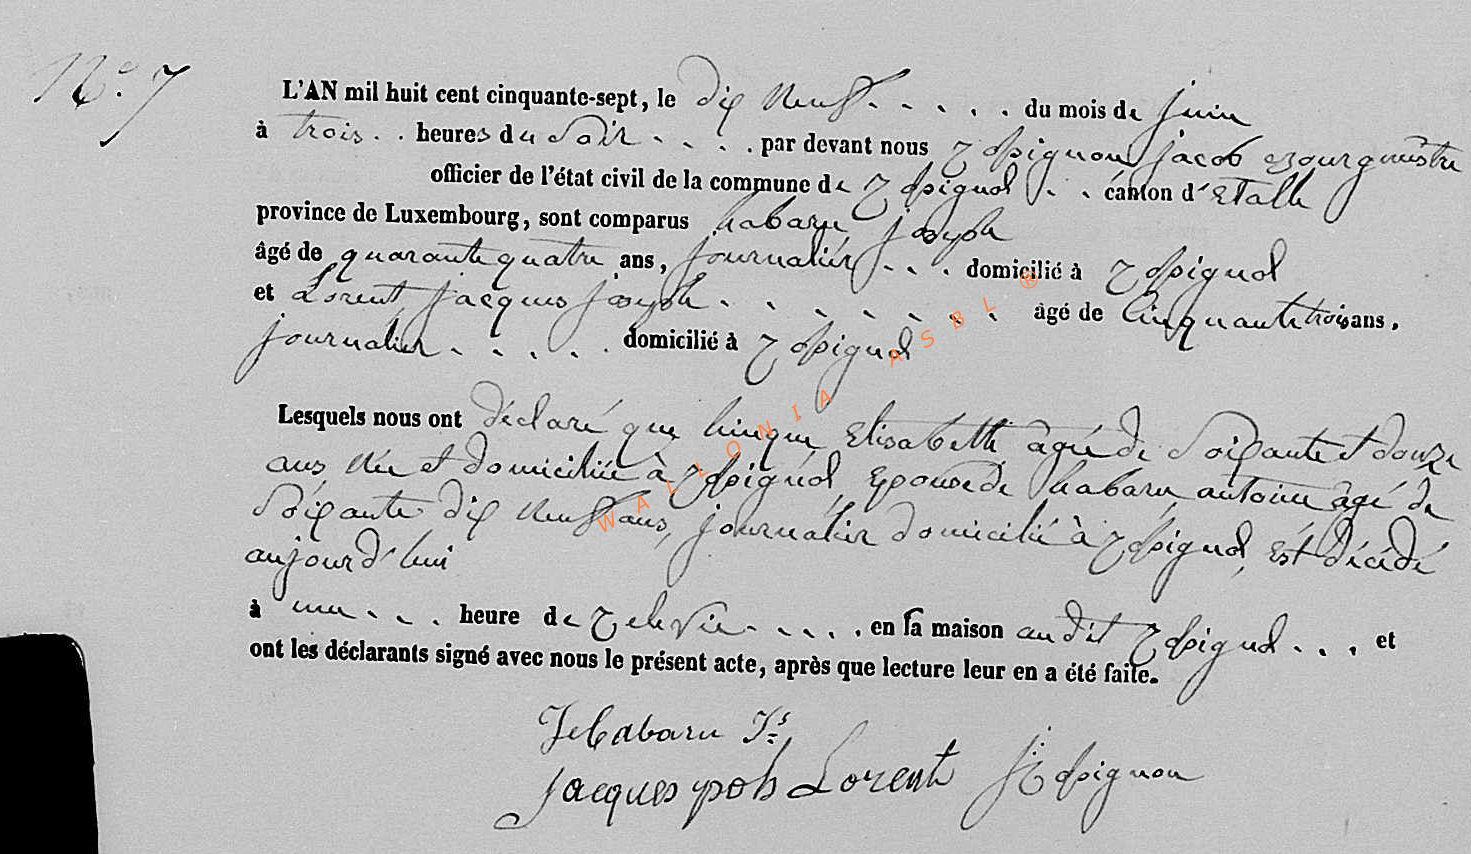 N° 7
L'AN mil huit cent cinquante-sept, le dix neuf . . . . . du mois de juin
à trois . . heures du Soir . . . . par devant nous Rossignon jacob Bourgmestre
officier de l'état civil de la commune de Rossignol . . canton d'Etalle
province de Luxembourg, sont comparus habaru joseph
âgé de quarante quatre ans, journalier . . . domicilié à Rossignol
et Lorent jacques joseph . . . . . . . . âgé de Cinquante trois ans.
journalier . . . . . domicilié à Rossignol
Lesquels nous ont déclaré que Elisabeth agée de Soixante et douze
ans Née et domiciliée à Rossignol Epouse de habaru antoine âgé de
Soixante dix neuf ans, journalier domicilié à Rossignol, Est décédé
aujourd'hui
à une . . . heure de Relevée . . . . . en sa maison audit Rossignol . . . et
ont les déclarants signé avec nous le présent acte, après que lecture leur en a été faite.
habaru Js
jacques Lorent J Rossignon
WALLONIA ASBL ®